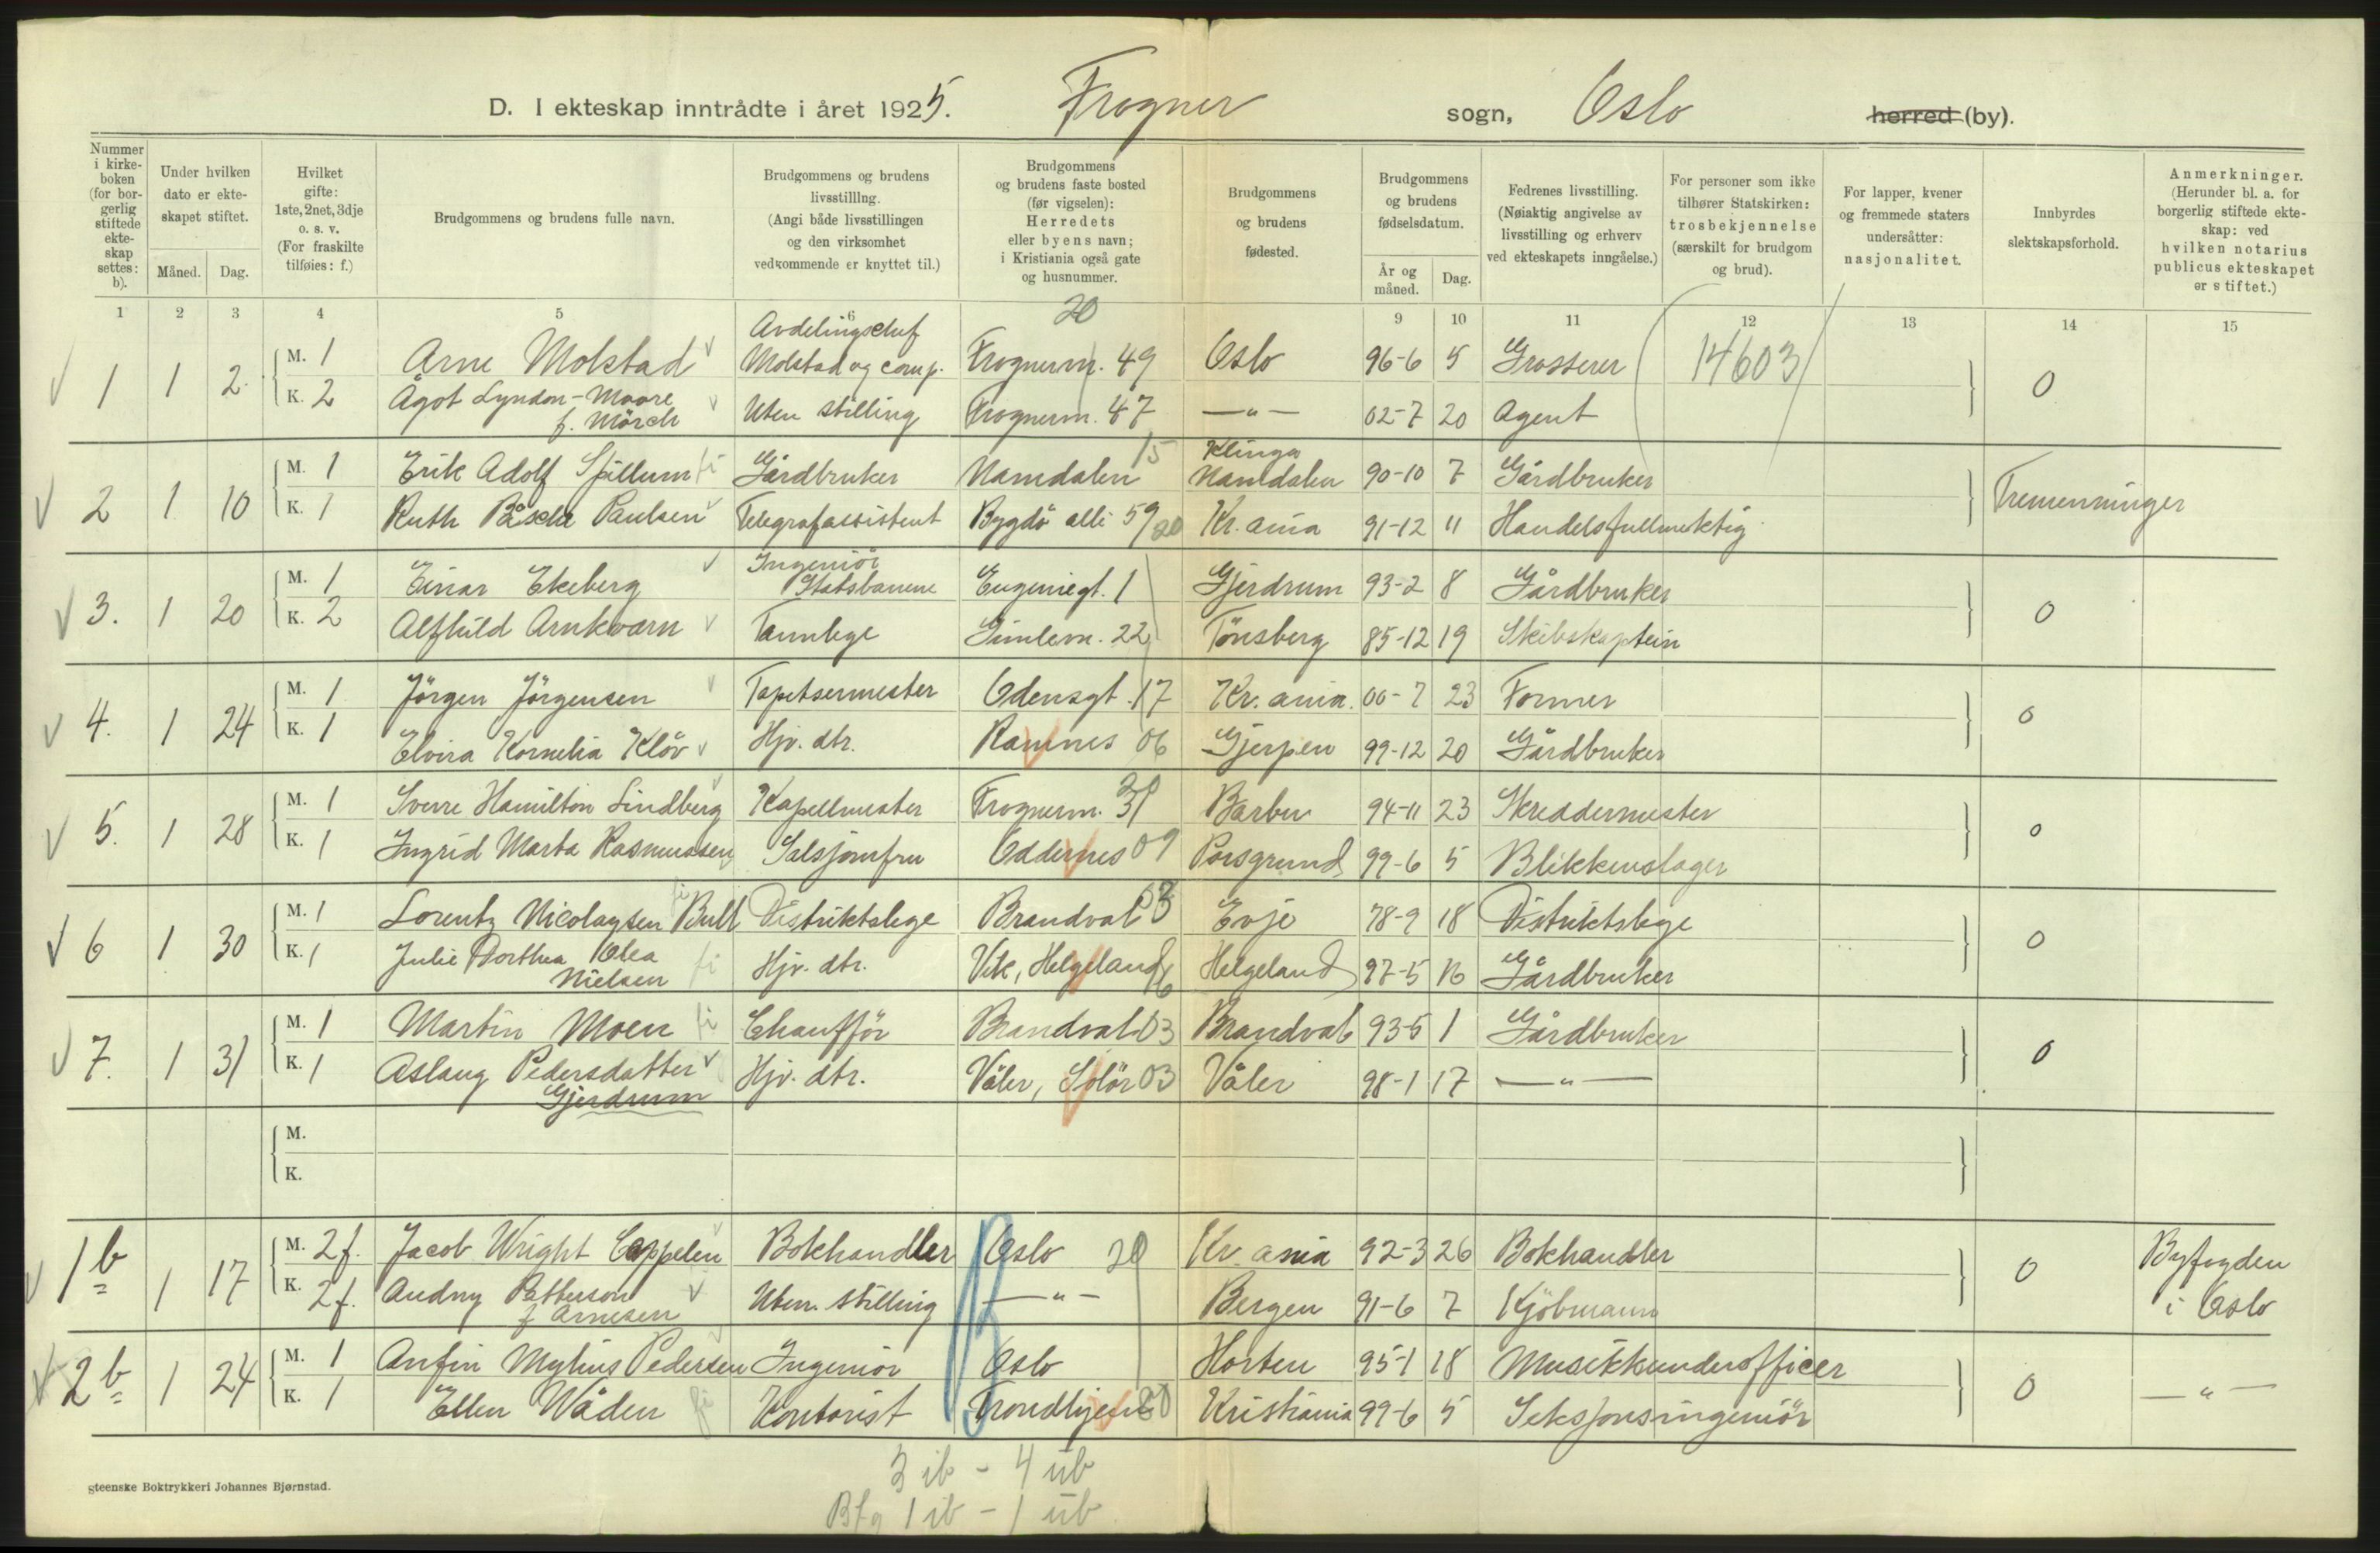 D. I ekteskap inntrådte i året 1925. Frogner sogn, Oslo herred (by).
Nummer i kirke-boken (for bor-gerlig stiftede ekte-skap settes: b).
Under hvilken dato er ekte-skapet stiftet.
Måned. Dag.
Hvilket gifte: 1ste, 2net, 3dje o. s. v. (For fraskilte tilføies: f.)
Brudgommens og brudens fulle navn.
Brudgommens og brudens livsstilllng. (Angi både livsstillingen og den virksomhet vedkommende er knyttet til.)
Brudgommens og brudens faste bosted (før vigselen): Herredets eller byens navn; i Kristiania også gate og husnummer.
Brudgommens og brudens fødested.
Brudgommens og brudens fødselsdatum.
År og måned. Dag.
Fedrenes livsstilling. (Nøiaktig angivelse av livsstilling og erhverv ved ekteskapets inngåelse.)
For personer som ikke tilhører Statskirken: trosbekjennelse (særskilt for brudgom og brud).
For lapper, kvener og fremmede staters undersåtter: nasjonalitet.
Innbyrdes slektskapsforhold.
Anmerkninger. (Herunder bl. a. for borgerlig stiftede ekte-skap: ved hvilken notarius publicus ekteskapet er stiftet.)
1 2 3 4 5 6 9 10 11 12 13 14 15
20
1 1 2 M. 1 Arne Molstad Avdelingschef Molstad og comp. Frognerv. 49 Oslo 96-6 5 Grosserer 14603 0
K. 2 Ågot Lyndon-Moore f. Mörch Uten stilling Frognerv. 47 —"— 02-7 20 Agent
2 1 10 M. 1 Erik Adolf Spillum fi Gårdbruker Namdalen 15 Klinga Namdalen 90-10 7 Gårdbruker Tremenninger
K. 1 Ruth Påsche Paulsen Telegrafassistent Bygdö allé 59 20 Kr.ania 91-12 11 Handelsfullmektig
3. 1 20 M. 1 Einar Ekeberg Ingeniör Statsbanene Eugeniegt. 1 Gjerdrum 93-2 8 Gårdbruker 0
K. 2 Alfhild Arnkværn Tannlege Gimlevn. 22 Tönsberg 85-12 19 Skibskaptein
4. 1 24 M. 1 Jörgen Jörgensen Tapetsermester Odensgt. 17 Kr.ania. 00-7 23 Former 0
K. 1 Elvira Kornelia Klöv Hjv. dtr. Ramnes 06 Gjerpen 99-12 20 Gårdbruker
5. 1 28 M. 1 Sverre Hamilton Lindberg Kapellmester Frognerv. 31 20 Barbu 94-11 23 Skreddermester 0
K. 1 Ingrid Marta Rasmussen Salsjomfru Oddernes 09 Porsgrund 99-6 5 Blikkenslager
6 1 30 M. 1 Lorentz Nicolaysen Bull fi Distriktslege Brandval 03 Evje 78-9 18 Distriktslege 0
K. 1 Julie Dorthea Olea Nielsen fi Hjv. dtr. Vik, Helgeland 16 Helgeland 97-5 16 Gårdbruker
7. 1 31 M. 1 Martin Moen fi Chaufför Brandval 03 Brandval 93-5 1 Gårdbruker 0
K. 1 Aslaug Pedersdatter Gjerdrum Hjv. dtr. Våler, Solör 03 Våler 98-1 17 —"—
M.
K.
1b 1 17 M. 2f. Jacob Wright Cappelen Bokhandler Oslo 20 Kr.ania 92-3 26 Bokhandler 0 Byfogden i Oslo
K. 2f. Audny Patterson f Arnesen Uten stilling —"— Bergen 91-6 7 Kjöbmann
2b 1 24 M. 1 Anfin Mylius Pedersen Ingeniör Oslo Horten 95-1 18 Musikkunderofficer 0 —"—
K. 1 Ellen Wåden fi Kontorist Trondhjem 80 Kristiania 99-6 5 Seksjonsingeniör
3 ib - 4 ub
Bfg 1 ib - 1 ub
gteenske Boktrykkeri Johannes Bjørnstad.